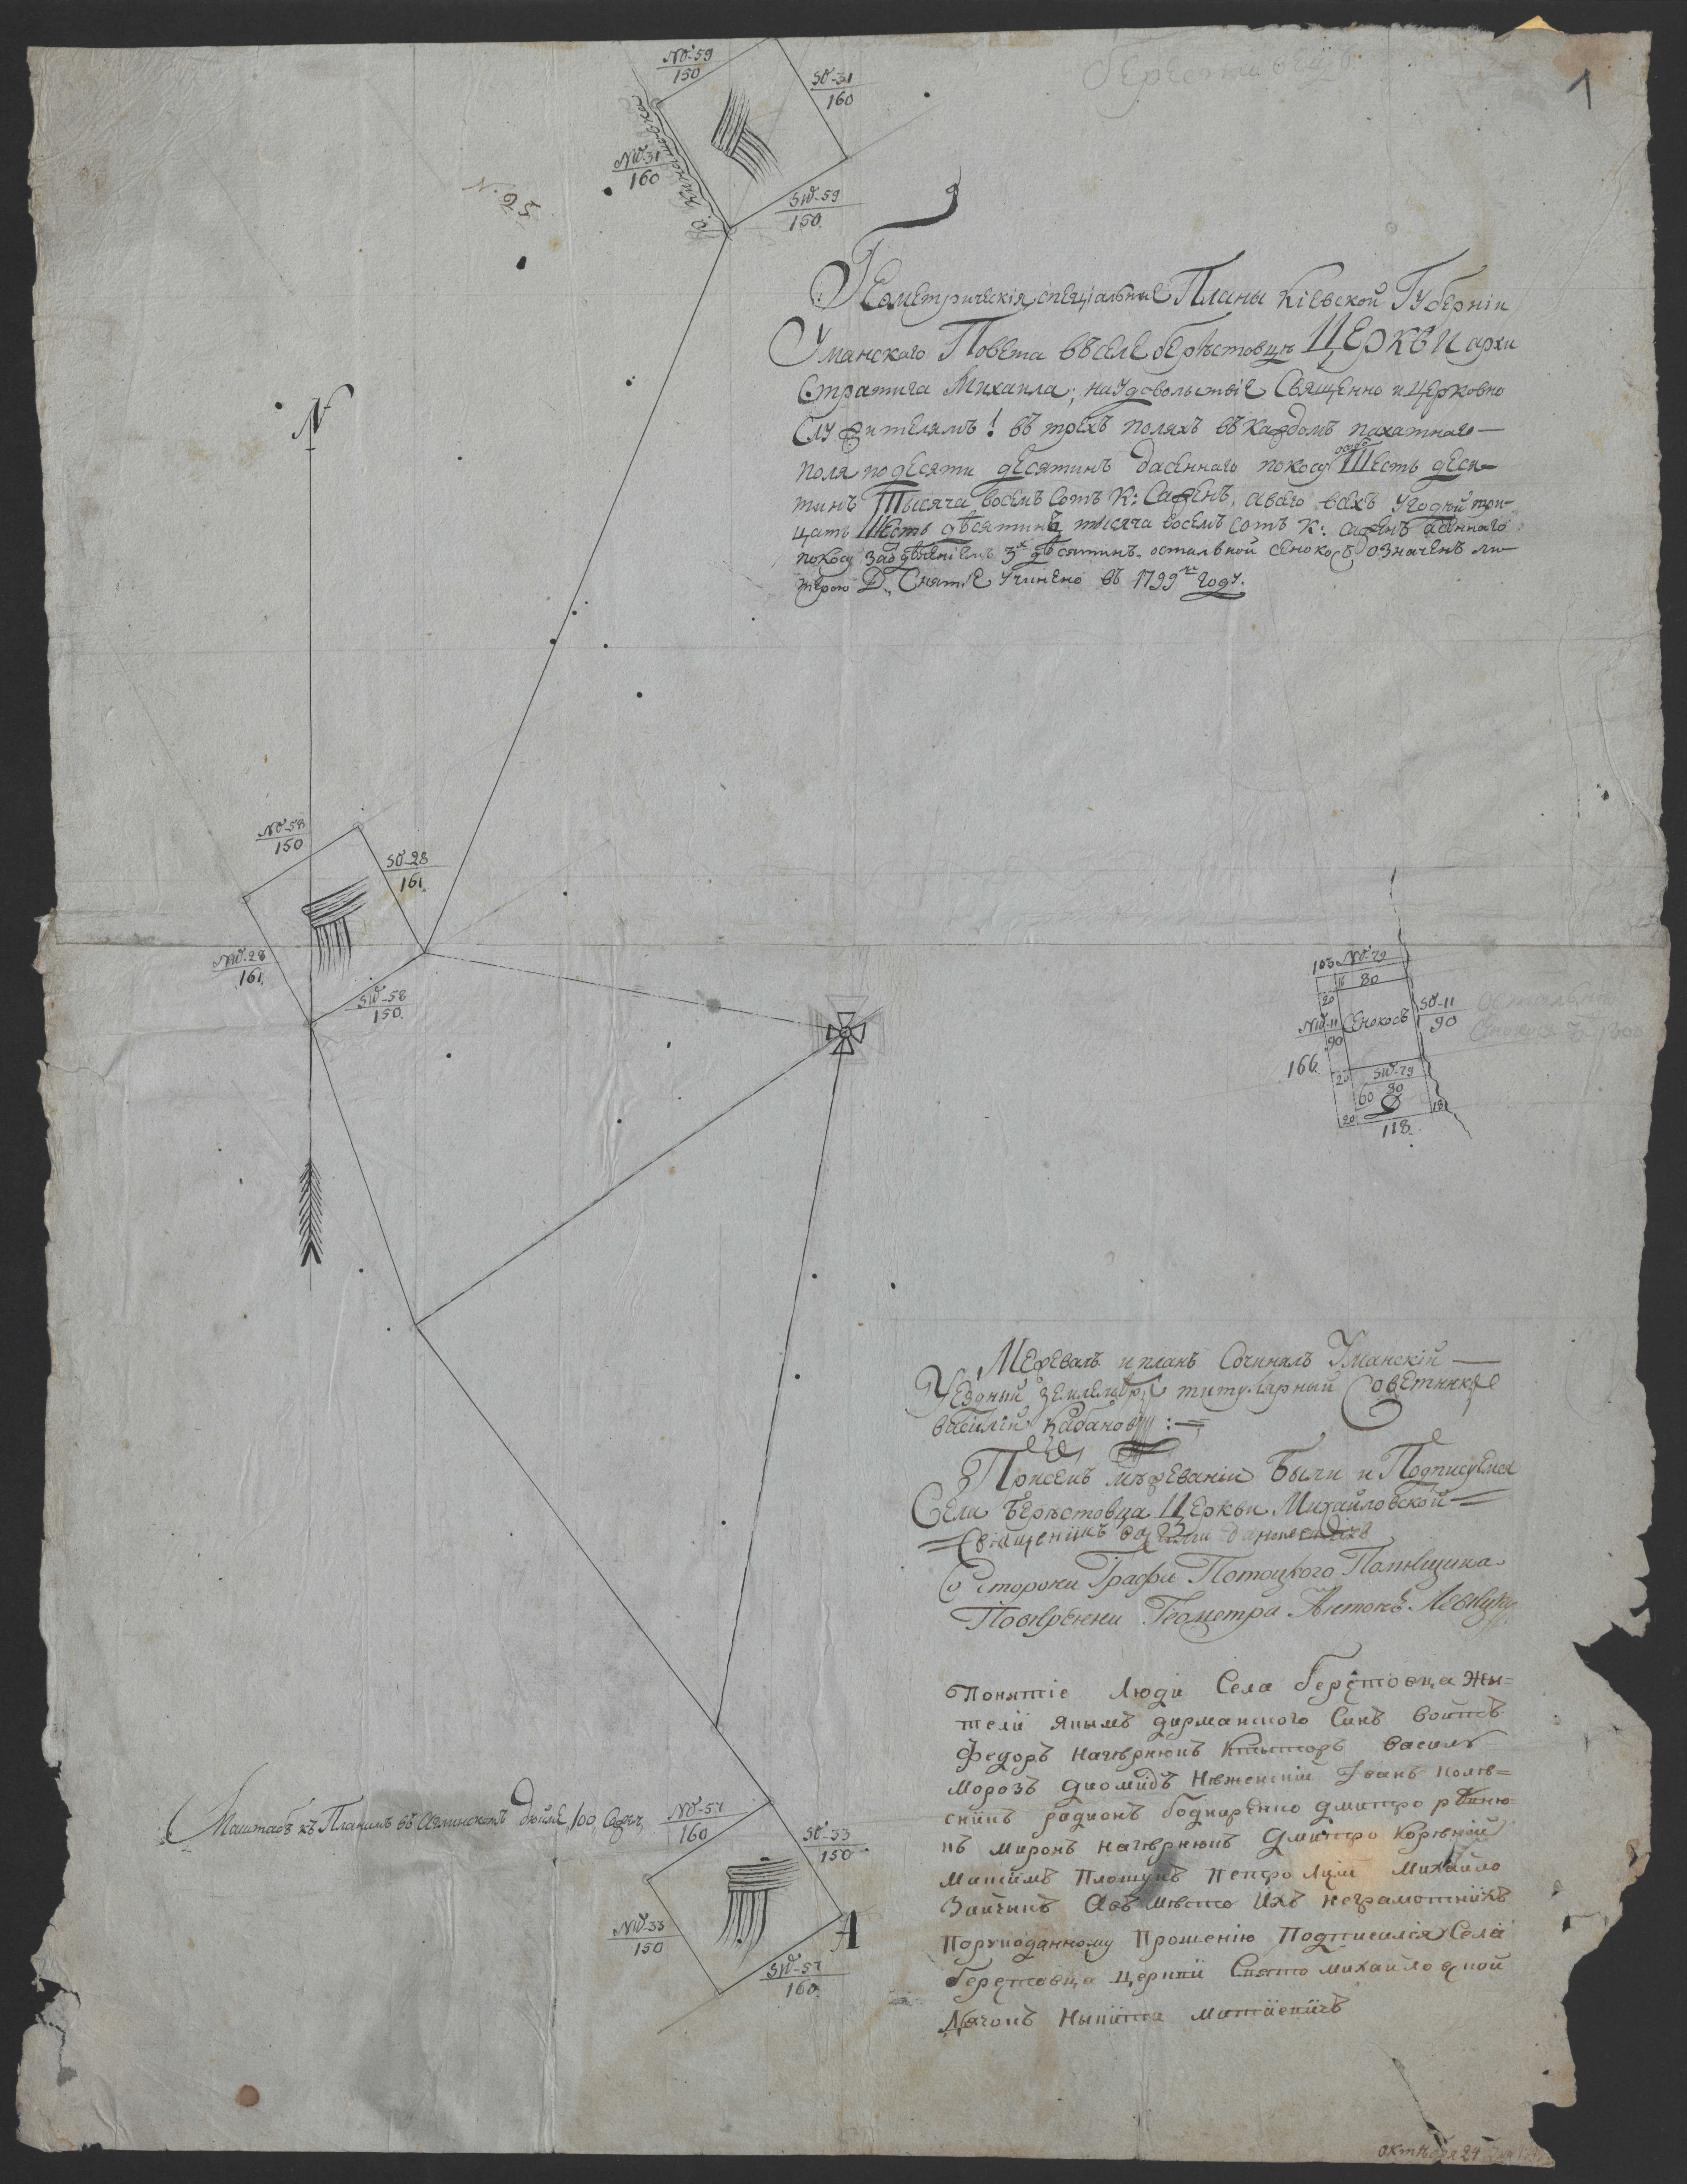 1
N. 65
NO-59
150
SO-31
160
NW-31
160
SW-59
150
Геометрическія спеціальные Планы Кіевской Губерніи
Уманскаго Повета въ селе берѣстовцѣ Церкви архи
Стратига Михаила, на удовольствіе Священно и церковно
служителямъ! въ трехъ поляхъ въ каждомъ пахатнаго
поля по десяти десятинъ да сеннаго покосу Шесть деся-
тинъ Тысяча восемъ сотъ К: Саженъ, а всего всехъ угодий три-
цать Шесть дѣсятинъ тысяча восемъ сотъ К: саженъ а сеннаго
покосу за 3х дѣсятинъ остальной сенокосъ означенъ ли-
терою D. Снятіе Учинено въ 1799м году.
N
NO-58
150
SO-28
161
NW-28
161
SW-58
150
106 NO-79
80
20
Сенокосъ
NW-11
90
SO-11
90
Остальной
Сенокосъ
166
20
SW-79
80
60
D
20
18
118
Межевалъ и планъ Сочинялъ Уманскій
Уездный землемѣръ титулярный Советникъ
Василій Кабановъ
При семъ мѣжеваніи Были и Подписуемся
Села Берѣстовца Церкви Михайловской
Священникъ
Со стороны Графа Потоцкого Помѣщика
Повѣренни Геометра Антонъ
Понятіе Люди Села берестовца Жы-
телй Якымъ дирманского Синъ Войтъ
Федоръ Начѣрнюкъ Ктыторъ Василь
Морозъ Диомидъ Нѣженскій Іванъ Колѣ-
сникъ радионъ боднаренко дмитро
къ миронъ начѣрнюкъ Дмитро Корѣний
Максимъ Петро Михайло
Зайчикъ А въ мѣсто Ихъ неграмотнихъ
По рукоданному Прошенію Подписался Села
берестовца церкви Свято михайловской
Дячокъ Никита
Маштабъ къ Планамъ въ Аглинскомъ дюйме, 100, Саж.
NO-57
160
SO-33
150
NW-33
150
A
SW-57
160
октября 24